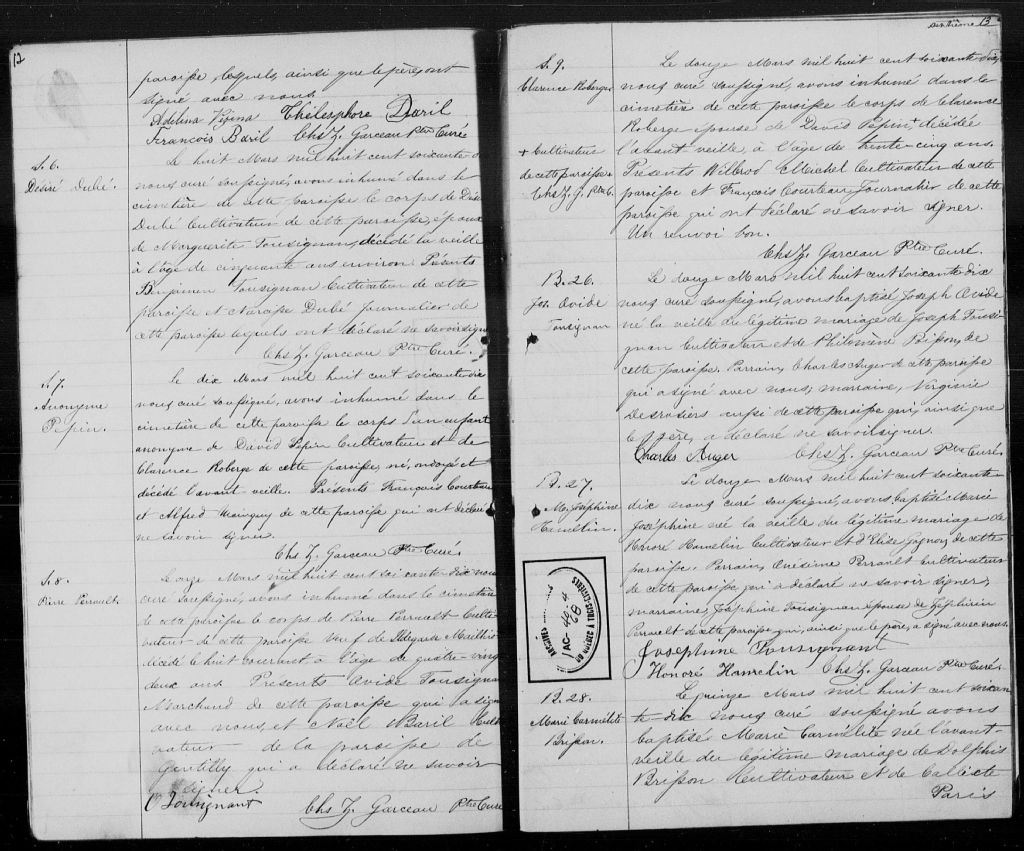 12
paroisse, lesquels, ainsi que le père, ont
signé avec nous.
Adelina Pepina Thélesphore Baril
François Baril Chs Z. Garceau Ptre Curé
S. 6.
Désiré Dubé.
Le huit Mars mil huit cent soixante-
nous curé soussigné, avons inhumé dans le
cimetière de cette paroisse le corps de Désiré
Dubé Cultivateur de cette paroisse, époux
de Marguerite Tousignan, décédé la veille
à l'âge de cinquante ans environ. Présents
Benjamin Tousignan Cultivateur de cette
paroisse et Narcisse Dubé Journalier de
cette paroisse lesquels ont déclaré ne savoir signer
Chs Z. Garceau Ptre Curé.
S. 7.
Anonyme
Pepin.
Le dix Mars mil huit cent soixante-dix
nous curé soussigné, avons inhumé dans le
cimetière de cette paroisse le corps d'un enfant
anonyme de David Pepin Cultivateur et de
Clarence Roberge de cette paroisse, né, ondoyé et
décédé l'avant-veille. Présents François Courteau
et Alfred Mainguy de cette paroisse qui ont déclaré
ne savoir signer.
Chs Z. Garceau Ptre Curé.
S. 8.
Pierre Perrault.
Le onze Mars mil huit cent soixante-dix nous
curé soussigné, avons inhumé dans le cimetière
de cette paroisse le corps de Pierre Perrault Culti-
vateur de cette paroisse veuf de Mailhot
décédé le huit courant à l'âge de quatre-vingt
deux ans. Présents Ovide Tousignan
Marchand de cette paroisse qui a signé
avec nous, et Noël Baril Culti-
vateur de la paroisse de
Gentilly qui a déclaré ne savoir
signer.
O Tousignant Chs Z. Garceau Ptre Curé
Septième 13
S. 9.
Clarence Roberge
+ Cultivateur
de cette paroisse
Chs Z. G. Ptre C.
Le douze Mars mil huit cent soixante dix,
nous curé soussigné, avons inhumé dans le
cimetière de cette paroisse le corps de Clarence
Roberge épouse de David Pepin + décédée
l'avant veille, à l'âge de trente-cinq ans.
Présents Wilbrod Michel Cultivateur de cette
paroisse et François Courteau Journalier de cette
paroisse qui ont déclaré ne savoir signer.
Un renvoi bon.
Chs Z. Garceau Ptre Curé.
B. 26.
Jos. Ovide
Tousignan
Le douze Mars mil huit cent soixante dix
nous curé soussigné, avons baptisé Joseph Ovide
né la veille du légitime mariage de Joseph Tousi-
gnan Cultivateur et de Philomène Brisson, de
cette paroisse. Parrain, Charles Auger de cette paroisse
qui a signé avec nous, marraine, Virginie
Desrosiers aussi de cette paroisse qui, ainsi que
le père, a déclaré ne savoir signer.
Charles Auger Chs Z. Garceau Ptre Curé.
B. 27.
M. Joséphine
Hamelin.
Le douze Mars mil huit cent soixante
dix nous curé soussigné, avons baptisé Marie
Joséphine née la veille du légitime mariage de
Honoré Hamelin Cultivateur et d'Elise Gagnon, de cette
paroisse. Parrain, Onésime Perrault Cultivateur
de cette paroisse, qui a déclaré ne savoir signer,
marraine, Joséphine Tousignan épouse de Zéphirin
Perrault de cette paroisse qui, ainsi que le père, a signé avec nous.
Joséphine Tousignant
Honoré Hamelin Chs Z. Garceau Ptre Curé.
ARCHIVES
AC-
68
DU QUÉBEC À TROIS-RIVIÈRES
B. 28.
Marie Carmélite
Brisson.
Le quinze Mars mil huit cent soixan
te-dix nous curé soussigné avons
baptisé Marie Carmélite née l'avant-
veille du légitime mariage de Dolphis
Brisson Cultivateur et de Calixte
Paris